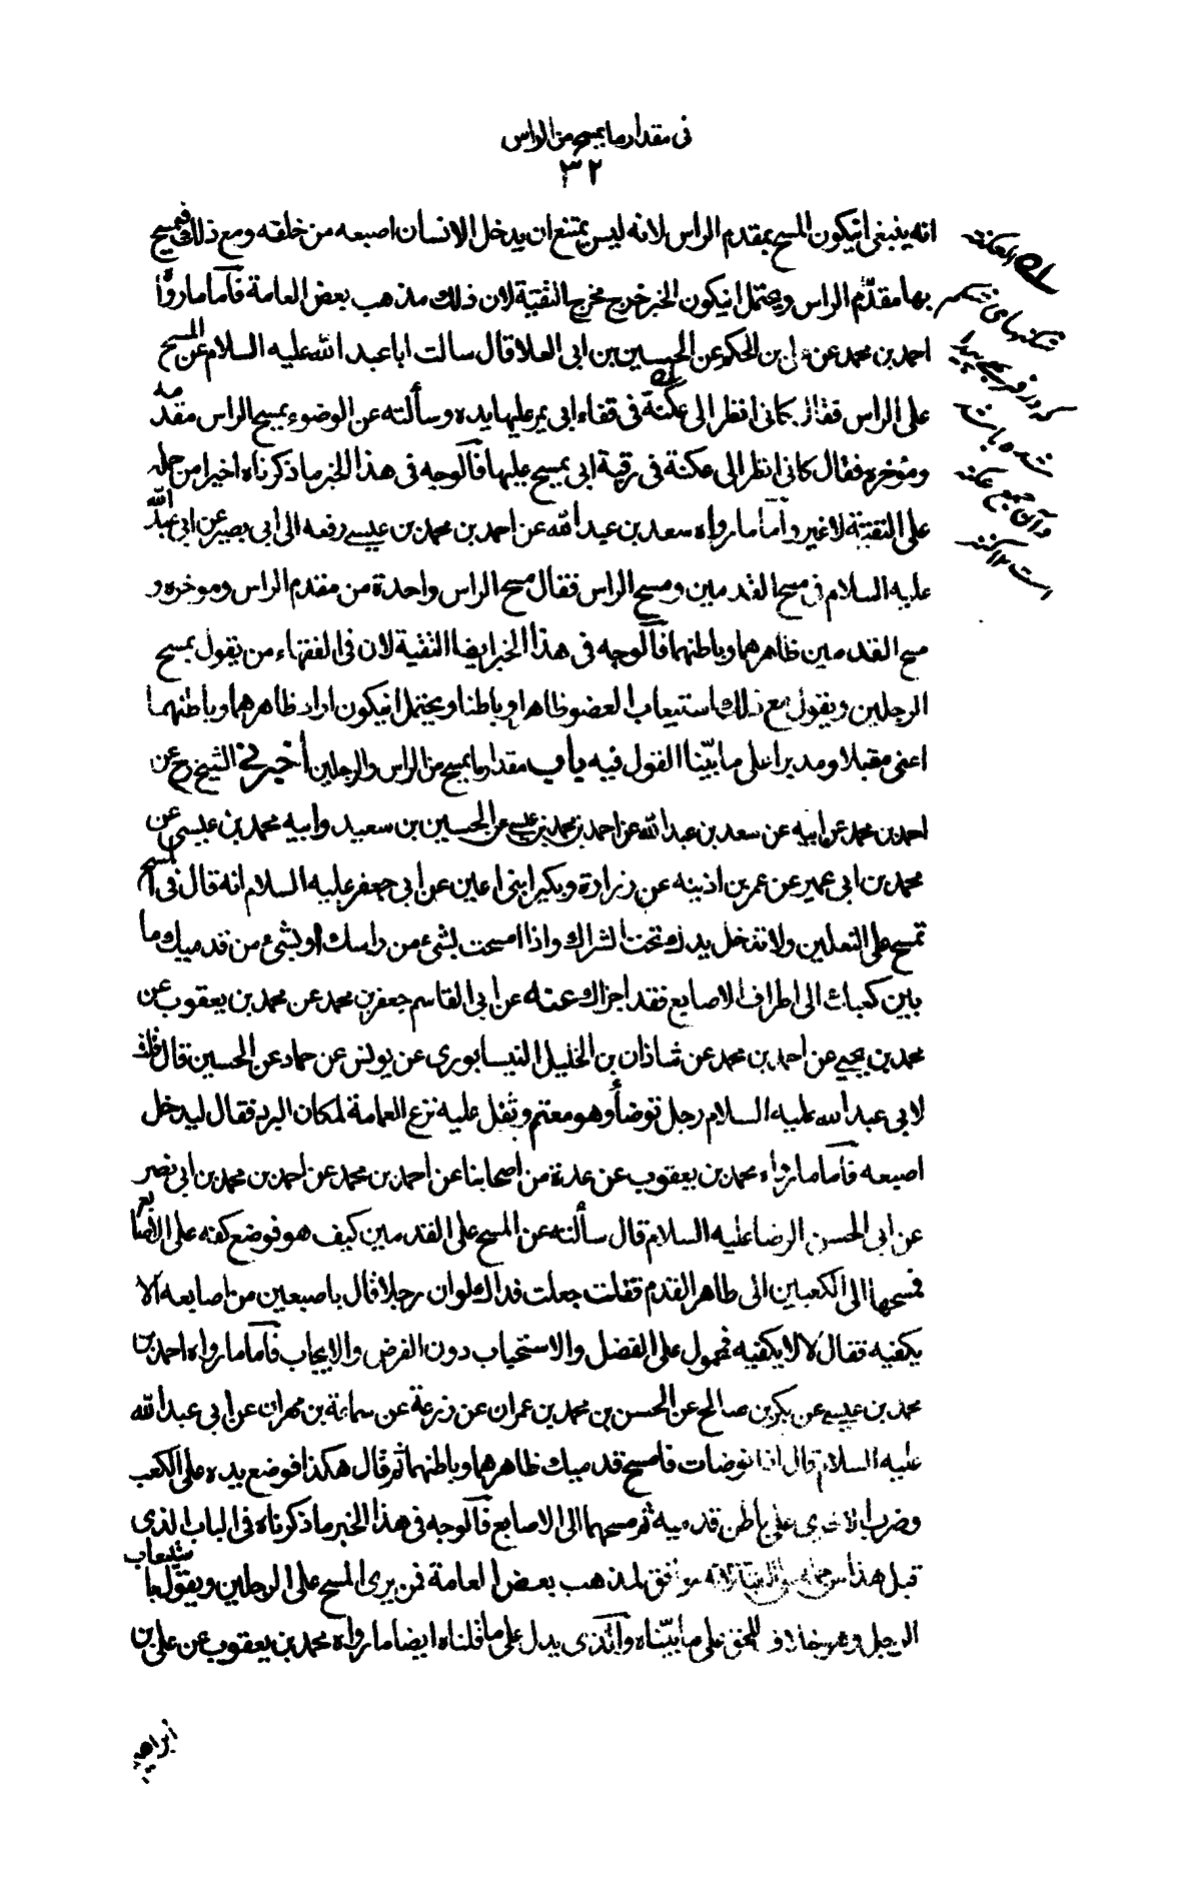 فى مقدار ما يمسح من الراس
٣٢
انه ينبغى انيكون المسح بمقدم الراس لانه ليس يمتنع ان يدخل الانسان اصبعه من خلفه ومع ذلك فيمسح
بها مقدّم الراس ويحتمل انيكون الخبر خرج مخرج التقيّة لان ذلك مذهب بعض العامة فامّا ما رواه
احمد بن محمد عن على بن الحكم عن الحسين بن ابى العلا قال سالت ابا عبد الله عليه السلام عن المسح
على الراس فقال كانى انظر الى عكنة فى قفاء ابى يمر عليها يده وسألته عن الوضوء يمسح الراس مقدمه
ومؤخره فقال كانى انظر الى عكنة فى رقبة ابى يمسح عليها فالوجه فى هذا الخبر ما ذكرناه اخيرا من حمله
على التقيّة لا غير وامّا ما رواه سعد بن عبد الله عن احمد بن محمد بن عيسى رفعه الى ابى بصير عن ابى عبد الله
عليه السلام فى مسح القدمين ومسح الراس فقال مسح الراس واحدة من مقدم الراس وموخره و
مسح القدمين ظاهرهما وباطنهما فالوجه فى هذا الخبر ايضا التقية لان فى الفقهاء من يقول بمسح
الرجلين ويقول مع ذلك باستيعاب العضو ظاهرا وباطنا ويحتمل انيكون اراد ظاهرهما وباطنهما
اعنى مقبلا ومدبرا على ما بيّنا القول فيه باب مقدار ما يمسح من الراس والرجلين أخبرنى الشيخ رح عن
احمد بن محمد عن ابيه عن سعد بن عبد الله عن احمد بن محمد بن عيسى عن الحسين بن سعيد وابيه محمد بن عيسى عن
محمد بن ابى عمير عن عمر بن اذينه عن زرارة وبكير ابنى اعين عن ابى جعفر عليه السلام انه قال فى المسح
تمسح على النعلين ولا تدخل يدك تحت الشراك واذا امسحت بشىء من راسك او بشىء من قدميك ما
بين كعبك الى اطراف الاصابع فقد اجزاك عنه عن ابى القاسم جعفر بن محمد عن محمد بن يعقوب عن
محمد بن يحيى عن احمد بن محمد عن شاذان بن الخليل النيسابورى عن يونس عن حماد عن الحسين قال قلت
لابى عبد الله عليه السلام رجل توضأ وهو معتم وثقل عليه نزع العمامة لمكان البرد فقال ليدخل
اصبعه فاما ما رواه محمد بن يعقوب عن عدة من اصحابنا عن احمد بن محمد عن احمد بن محمد بن ابى نصر
عن ابى الحسن الرضا عليه السلام قال سألته عن المسح على القدمين كيف هو فوضع كفه على الاصابع
فمسحها الى الكعبين الى ظاهر القدم فقلت جعلت فداك لو ان رجلا قال باصبعين من اصابعه الا
يكفيه فقال لا لا يكفيه فمحمول على الفضل والاستحباب دون الفرض والايجاب فاما ما رواه احمد بن
محمد بن عيسى عن بكر بن صالح عن الحسن بن محمد بن عمران عن زرعة عن سماعة بن مهران عن ابى عبد الله
عليه السلام قال اذا توضات فامسح قدميك ظاهرهما وباطنهما ثم قال هكذا فوضع يده على الكعب
وضرب الاخرى على باطن قدميه ثم مسحهما الى الاصابع فالوجه فى هذا الخبر ما ذكرناه فى الباب الذى
قبل هذا من حمله على التقية لانه موافق لمذهب بعض العامة ممن يرى المسح على الرجلين ويقول باستيعاب
الرجل وهو خلاف للحق على ما بيّناه والذى يدل على ما قلناه ايضا ما رواه محمد بن يعقوب عن على بن
ابراهيم
العكنه